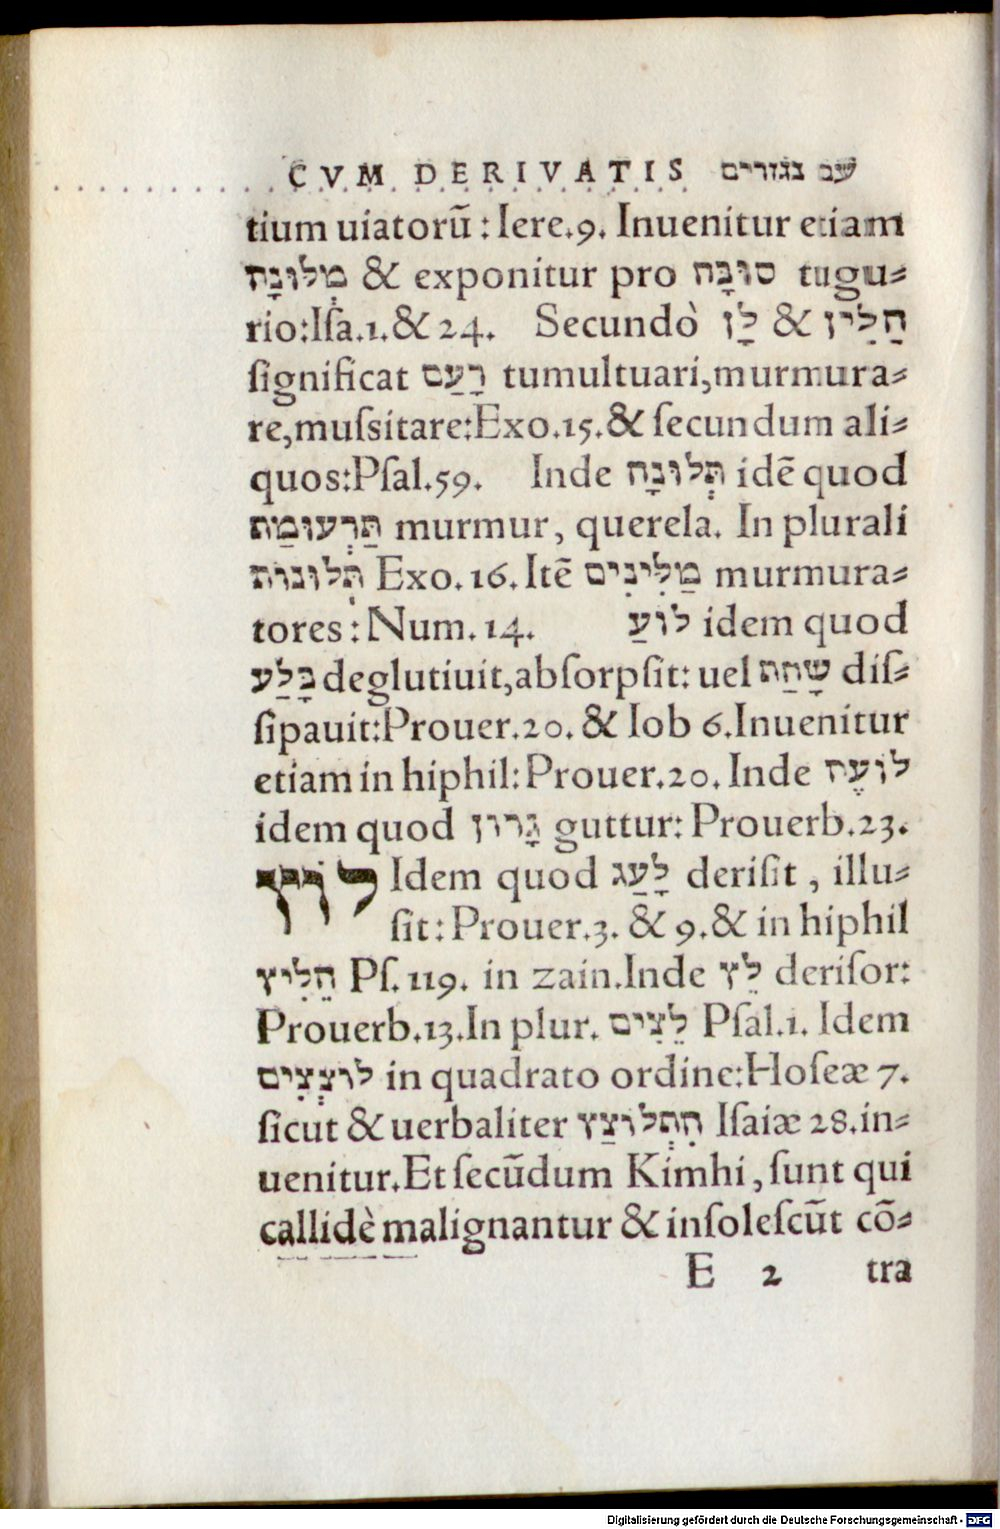 CVM DERIVATIS עב בנגזרים
tium uiatorũ : Iere.9. Inuenitur etiam
מְלוּנָה & exponitur pro סוּכָּה tugu⸗
rio:Iſa.1.& 24. Secundò לָן & הֵלִין
ſignificat רָעַם tumultuari,murmura⸗
re,muſsitare:Exo.15.& ſecundum ali⸗
quos:Pſal.59. Inde תְּלוּנָה idẽ quod
תַּרְעוּמַת murmur, querela. In plurali
תְּלוּנוֹת Exo.16.Itẽ מַלִּינִים murmura⸗
tores : Num.14. לוּעַ idem quod
בָּלַע deglutiuit,abſorpſit: uel שָׁחַת diſ⸗
ſipauit:Prouer.20. & Iob 6.Inuenitur
etiam in hiphil:Prouer.20. Inde לוֹעַ
idem quod גָּרוֹן guttur: Prouerb.23.
לוּץ Idem quod לָעַג deriſit , illu⸗
ſit: Prouer.3. & 9.& in hiphil
הֵלִיץ Pſ.119. in zain.Inde לֵץ deriſor:
Prouerb.13.In plur. לֵצִים Pſal.1. Idem
לוֹצְצִים in quadrato ordine:Hoſeæ 7.
ſicut & uerbaliter הִתְלוֹצַץ Iſaiæ 28.in⸗
uenitur.Et ſecũdum Kimhi, ſunt qui
callidè malignantur & inſoleſcũt cõ⸗
E 2 tra
Digitalisierung gefördert durch die Deutsche Forschungsgemeinschaft - DFG